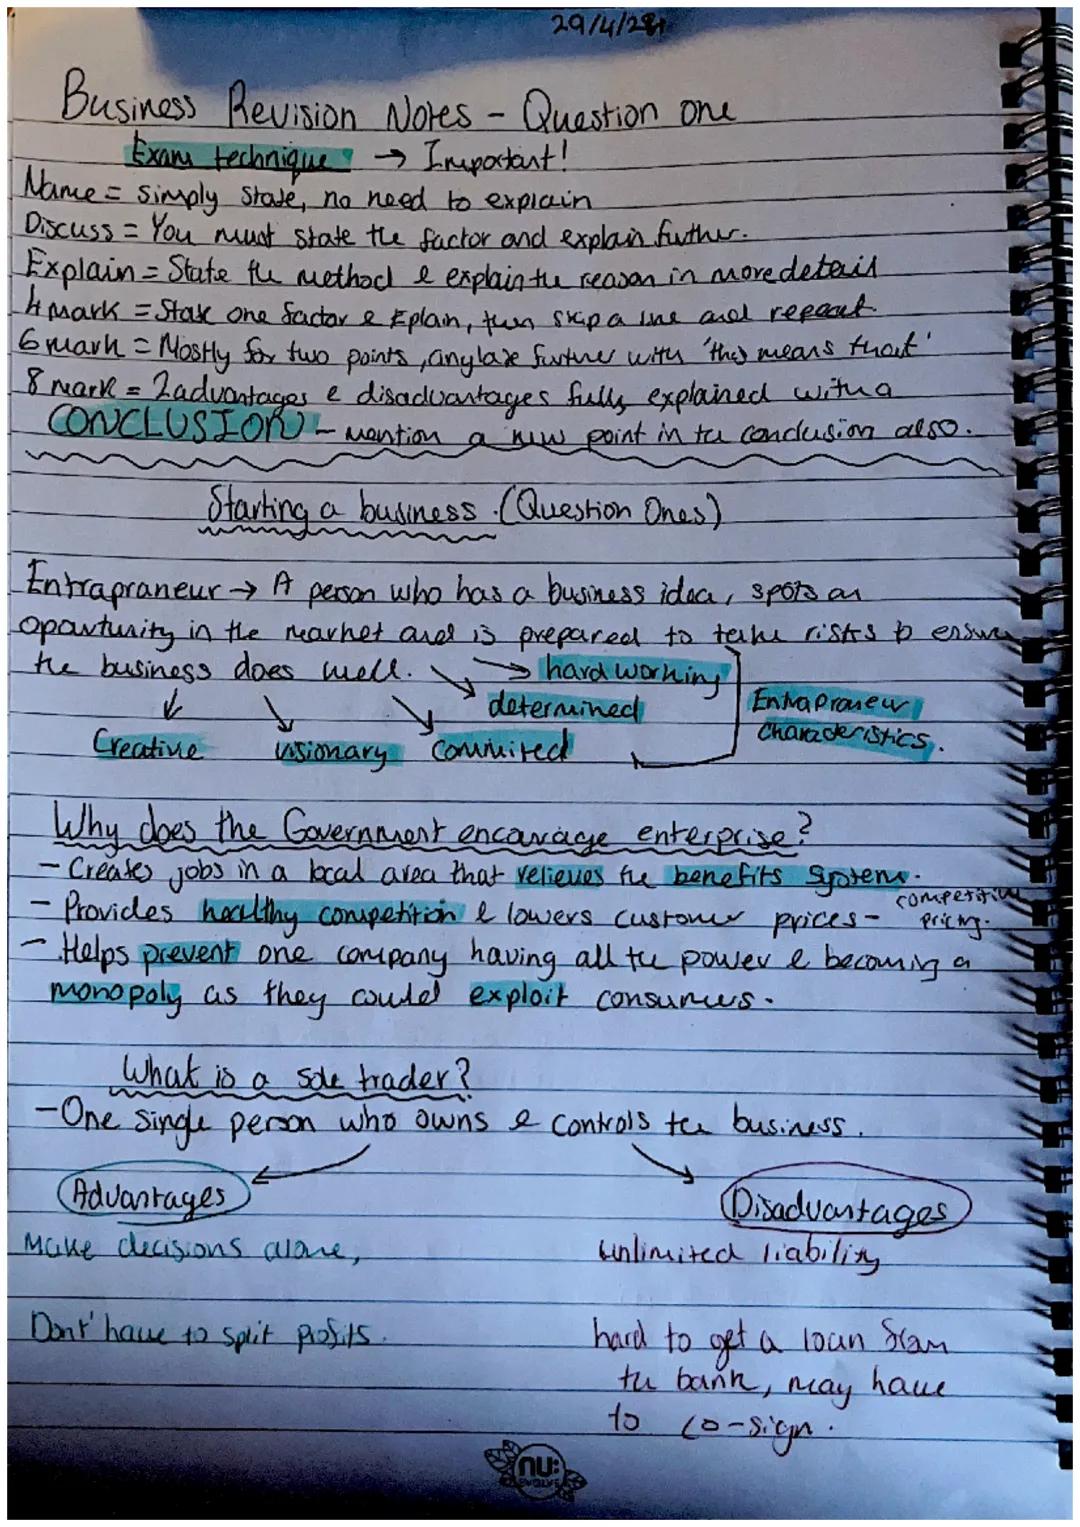 29/4/24
Business Revision Notes - Question one
Exam technique → Important!
Name = Simply State, no need to explain
Discuss = You must state the factor and explain further.
Explain = State the method & explain the reason in more detail
4 mark = State one factor & Explain, then skip a line and repeat
6 mark = Mostly for two points, further with 'this means that'
8 mark = 2 advantages & disadvantages fully explained with a
CONCLUSION - mention a new point in the conclusion also.
Starting a business. (Question Ones)
Entrapraneur → A person who has a business idea, spots an
opourtunity in the market and is prepared to take risks to ensure
the business does well. → hardworking
determined
Entrapraneur
Characteristics.
Creative visionary Commited
Why does the Government encourage enterprise?
- Creates jobs in a local area that relieves the benefits system.
- Provides healthy competition & lowers customer prices - competitive
pricing.
- Helps prevent one company having all the power & becoming a
monopoly as they could exploit consumers.
What is a sole trader?
- One single person who owns & controls the business.
Advantages Disadvantages
Make decisions alone, unlimited liability
Dont' have to split profits. hard to get a loan from
the bank, may have
to co-sign.
nu:
EVOLVE